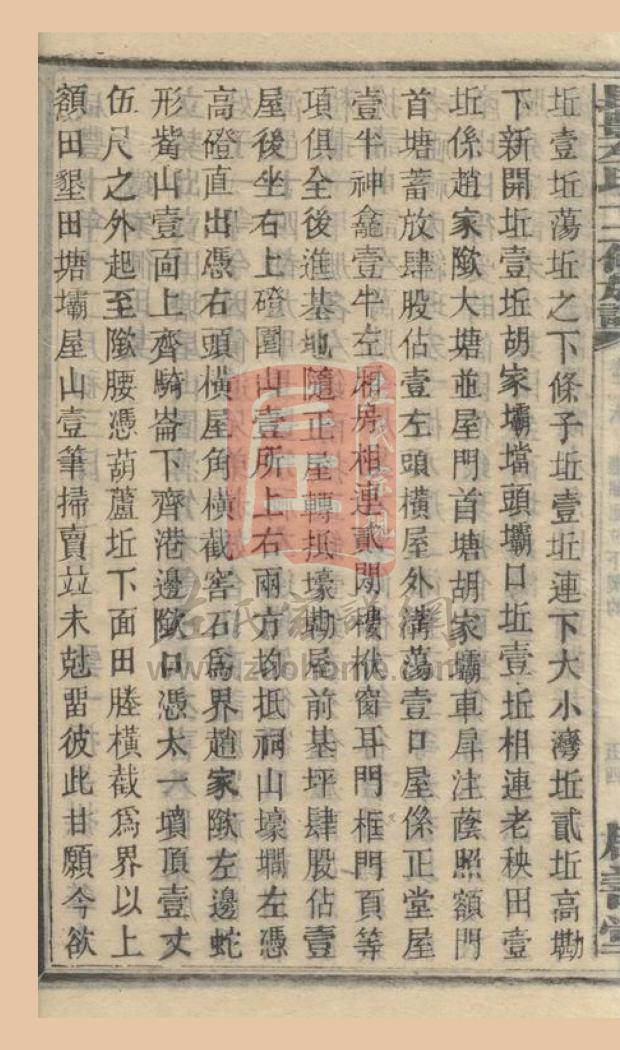 坵壹坵蕩坵之下條子坵壹坵連下大小灣坵貳坵高勘
下新開坵壹坵胡家壩壋頭壩口坵壹坵相連老秧田壹
坵係趙家陂大塘並屋門首塘胡家壩車犀注蔭照額門
首塘蓄放肆股估壹左頭橫屋外溝蕩壹口屋係正堂屋
壹半神龕壹半左厢房相連貳間樓栿窗耳門框門頁等
項俱全後進基地隨正屋轉抵壕勘屋前基坪肆股估壹
屋後坐右上磴圍山壹所上右兩方均抵祠山壕墹左憑
高磴直出憑右頭橫屋角橫截窖石爲界趙家陂左邊蛇
形嘴山壹向上齊騎崙下齊港邊陂口憑太一墳頂壹丈
伍尺之外起至陂腰憑葫蘆坵下面田塍橫截爲界以上
額田墾田塘壩屋山壹筆掃賣竝未尅畱彼此甘願今欲
www.jzdohome.com